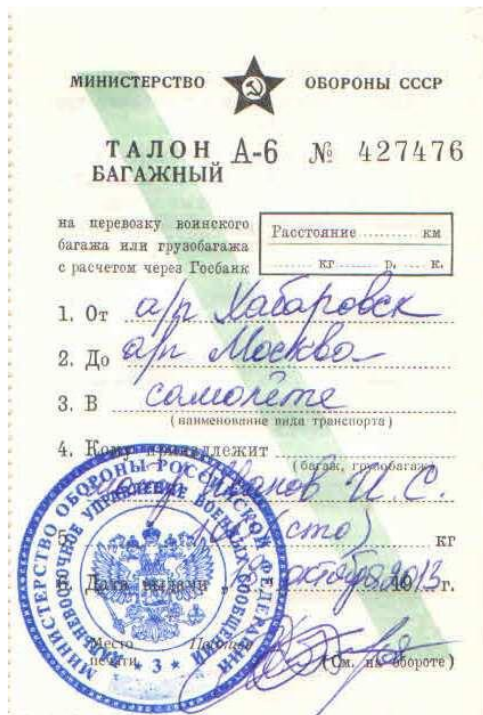 МИНИСТЕРСТВО ОБОРОНЫ СССР
ТАЛОН А-6 № 427476
БАГАЖНЫЙ
на перевозку воинского
багажа или грузобагажа
с расчетом через Госбанк
Расстояние км
кг р. к.
1. От а/п Хабаровск
2. До а/п Москва
3. В самолёте
(наименование вида транспорта)
4. Кому принадлежит
(багаж, грузобагаж)
Иванов И. С.
(сто) кг
Дата выдачи октября 2013 г.
Место
печати
(См. на обороте)
МИНИСТЕРСТВО ОБОРОНЫ РОССИЙСКОЙ ФЕДЕРАЦИИ
УПРАВЛЕНИЕ ВОЕННЫХ СООБЩЕНИЙ
* 3 *